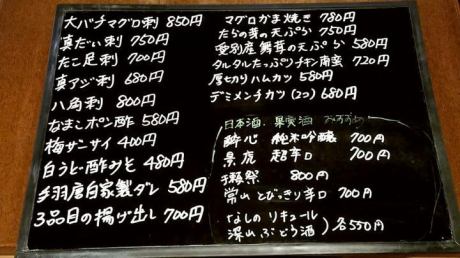 大バチマグロ刺 850円
真だい刺 750円
たこ足刺 700円
真アジ刺 680円
八角刺 800円
なまこポン酢 580円
梅サンサイ 400円
白うど酢みそ 480円
手羽唐自家製ダレ 580円
3品目の揚げ出し 700円
マグロかま焼き 780円
たらの芽の天ぷら 750円
愛別産 舞茸の天ぷら 580円
タルタルたっぷりチキン南蛮 720円
厚切りハムカツ 580円
デミメンチカツ(2コ) 680円
日本酒、果実酒
酔心 純米吟醸 700円
景虎 超辛口 700円
獺祭 800円
常山 とびっきり辛口 700円
なしの リキュール
深山ぶどう酒 各550円